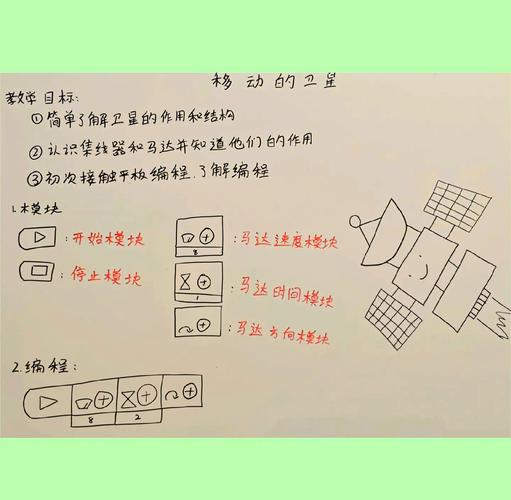 移动的卫星
教学目标:
①简单了解卫星的作用和结构
②认识集线器和马达并知道他们的作用
③初次接触平板编程、了解编程
1.模块
:开始模块
8
:马达速度模块
:停止模块
1
:马达时间模块
:马达方向模块
2.编程:
8 2